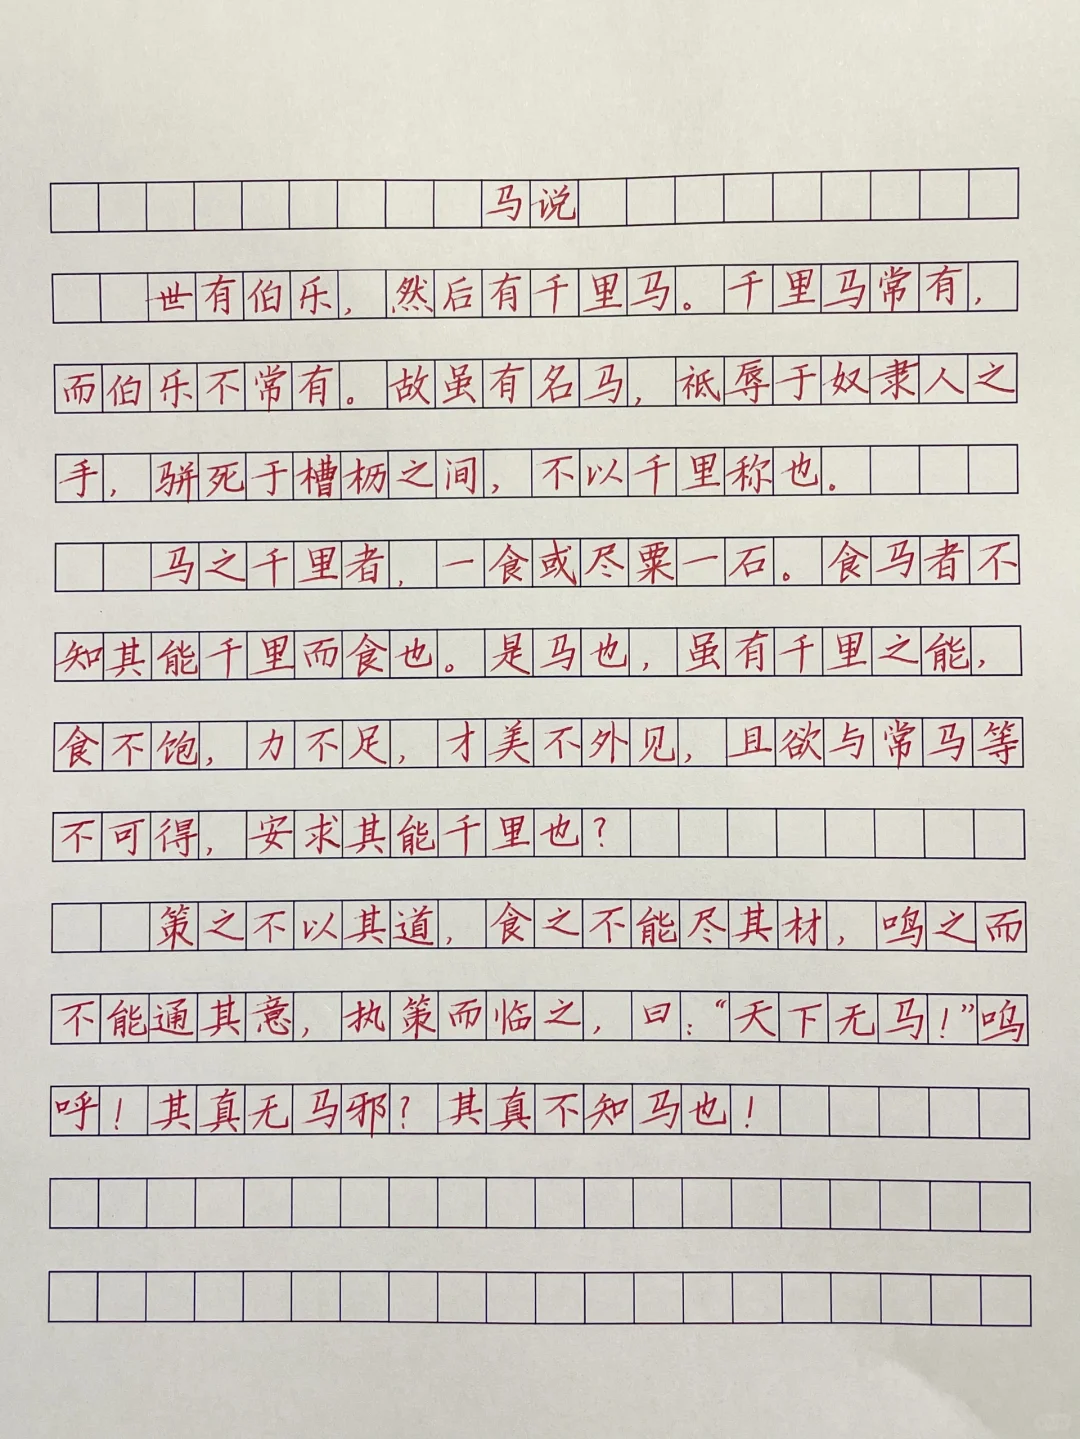 马说
世有伯乐，然后有千里马。千里马常有，
而伯乐不常有。故虽有名马，祗辱于奴隶人之
手，骈死于槽枥之间，不以千里称也。
马之千里者，一食或尽粟一石。食马者不
知其能千里而食也。是马也，虽有千里之能，
食不饱，力不足，才美不外见，且欲与常马等
不可得，安求其能千里也？
策之不以其道，食之不能尽其材，鸣之而
不能通其意，执策而临之，曰：“天下无马！”呜
呼！其真无马邪？其真不知马也！